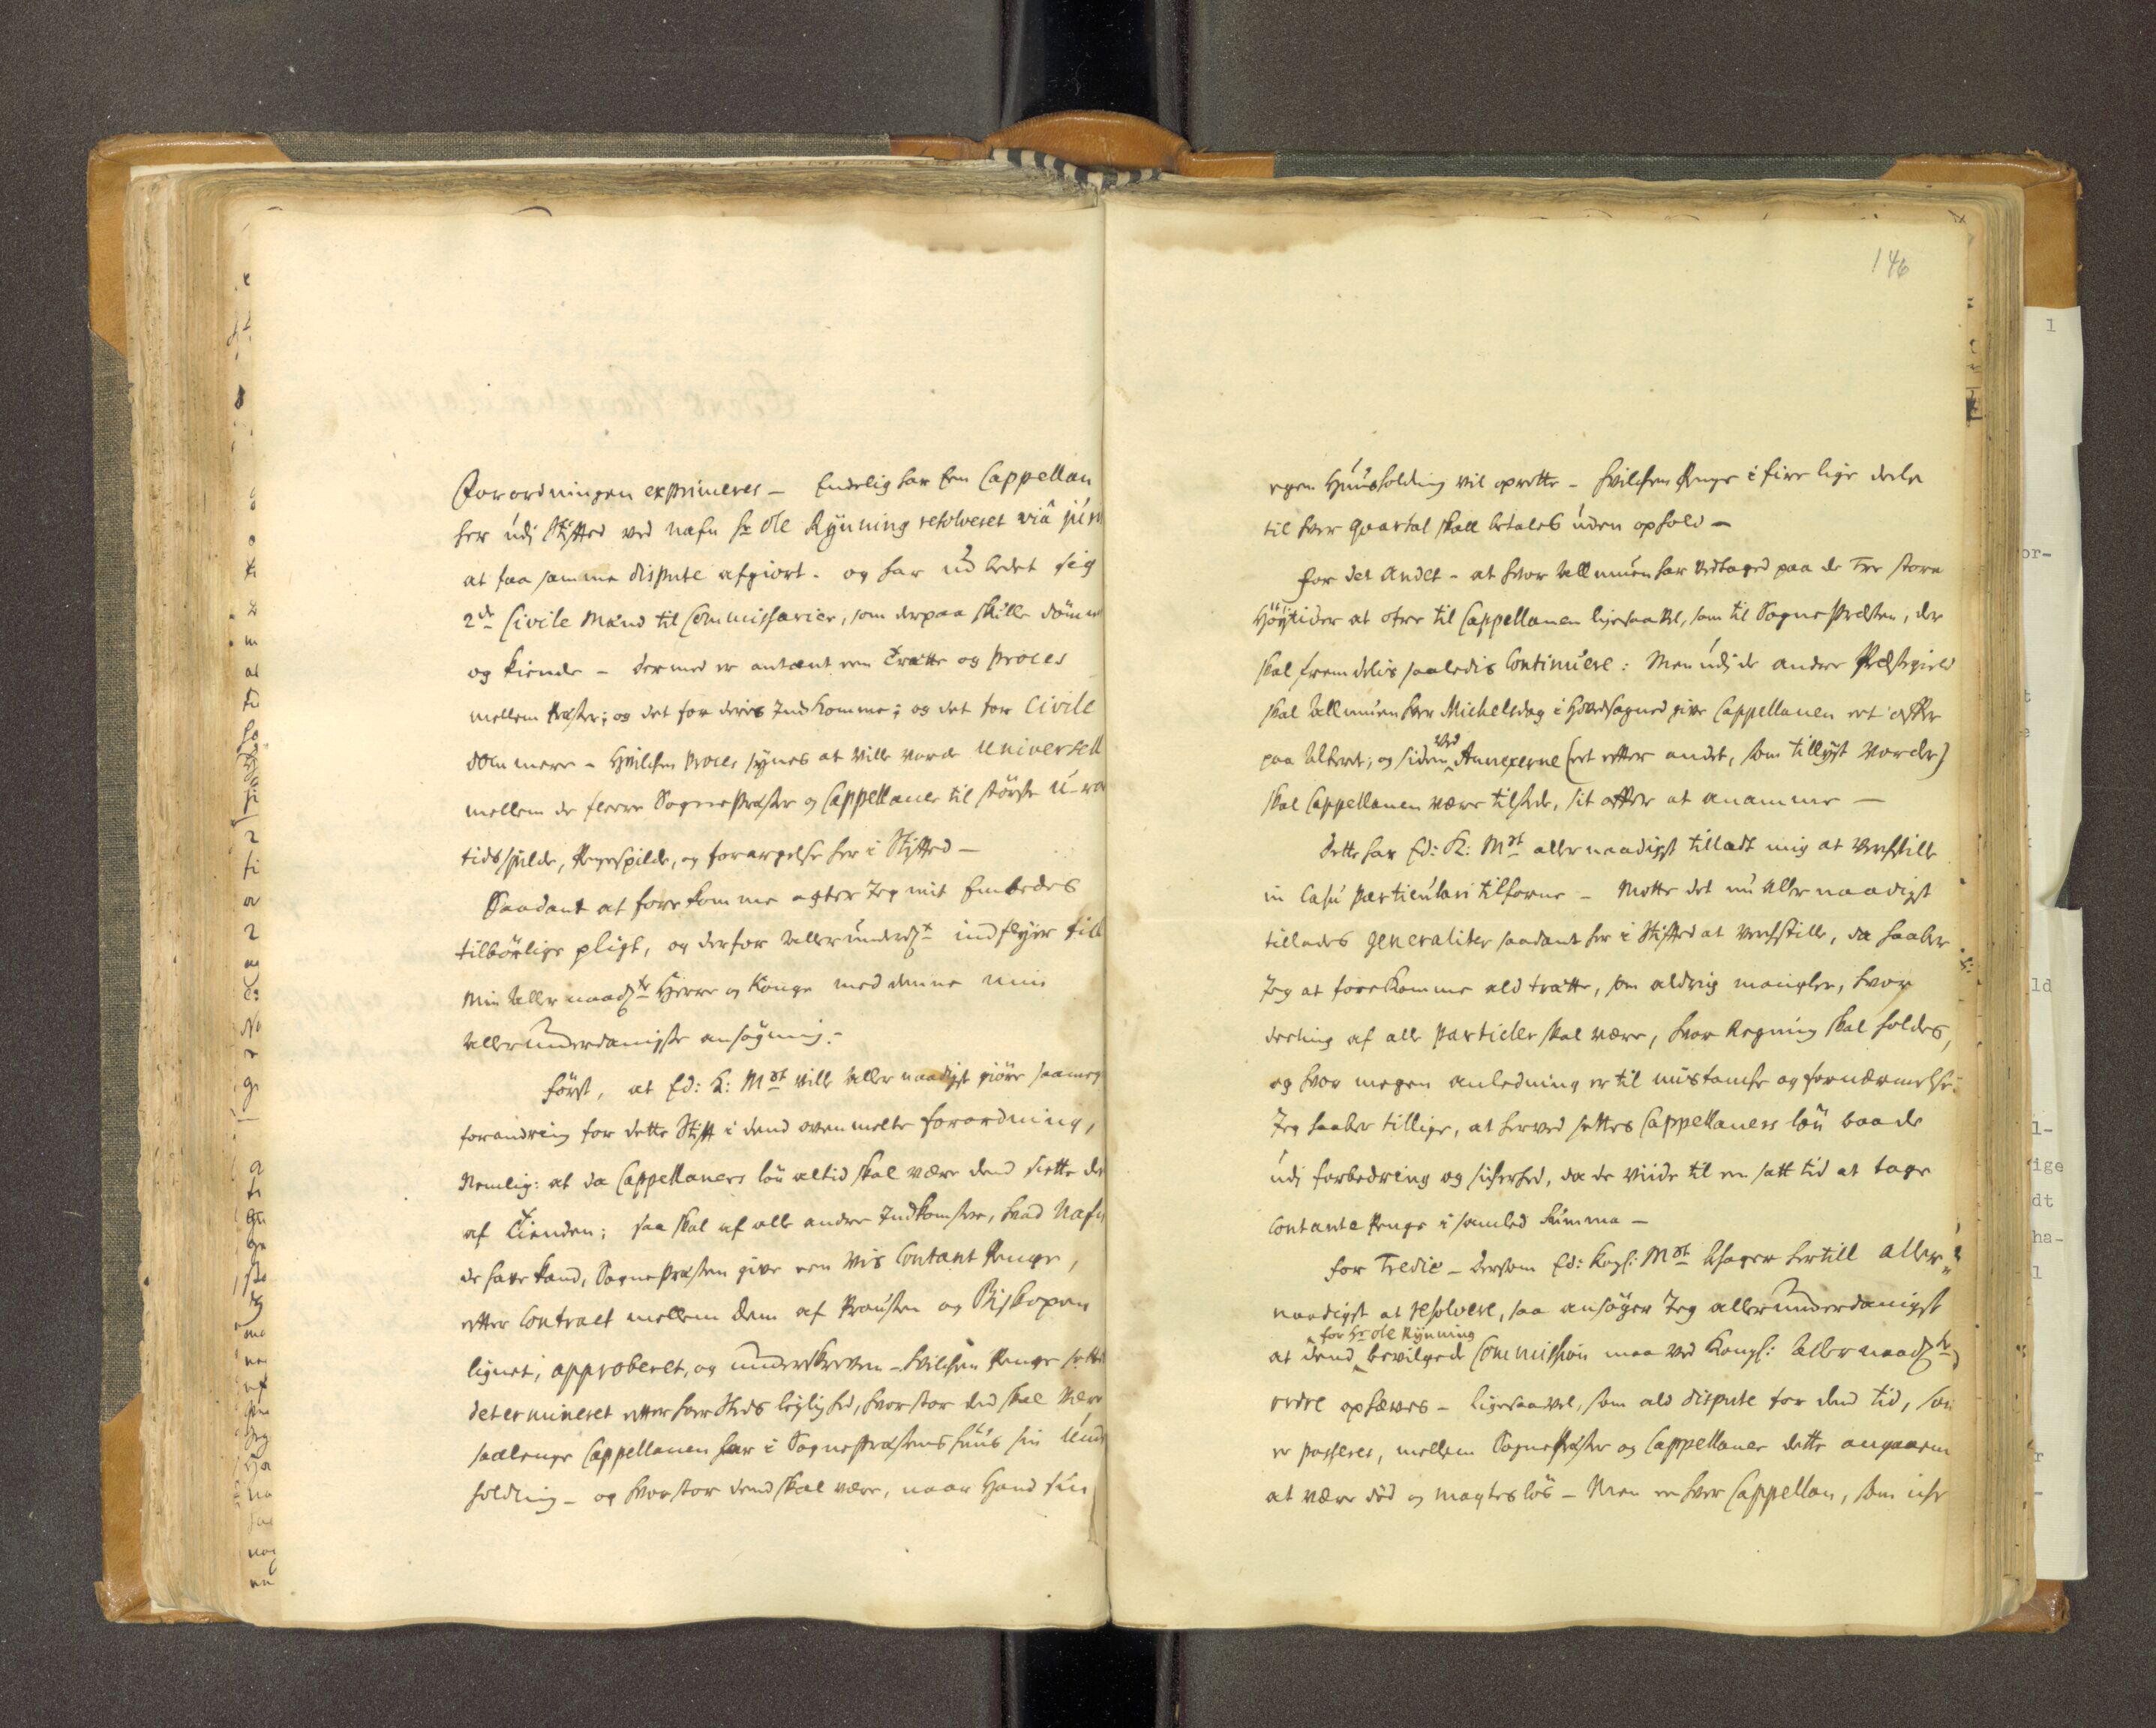 Forordningen exprimeres – Endelig har Een Cappellan
her udj Stiffted ved nafn Hr Ole Rÿnning resolveret viâ juris
at faa samme dispute afgiort. og har udbedet sig
2de Civile Mænd til Commissarier, som derpaa skulle dömme
og kiende – dermed er antænt een Trætte og Proces
mellem Præster; og det for deris Indkomme; og det for Civile
dommere – Hvilchen Proces sÿnes at ville vorde Universell
mellem de fleere Sognepræster og Cappellaner til störste U-ro
tidsspilde, Pengespilde, og forargelse her i Stifftet –
Saadant at forekomme agter Jeg mit Embedes
tilbörlige pligt, og derfor allerunderdst indflÿer till
Min allernaadste Herre og Konge med denne min
allerunderdanigste ansögning.
Först, at Ed: K: Mst ville allernaadigst giöre saameg
forandring for dette Stift i dend ovenmelte forordning,
Nemlig: at da Cappellaners lön altid skal være dend siette de
af Tienden; saa skal af alle andre Indkomster, hvad Nafn
de have kand, Sognepræsten give een vis Contant Penge,
effter Contract mellem dem af Prousten og Biskopen
lignet, approberet, og underskreven – hvilchen Penge sættis
determineret effter hver Steds leylighed, hvor stor dend skal være
saalenge Cappellanen har i Sognepræstens huus sin Under
holdning – og hvor stor dend skal være, naar Hand sin
146
egen Huusholdning vil oprette – hvilchen Penge i fire lige deele
til hver Qvartal skall betales uden ophold –
For det Andet – at hvor Allmuen har vedtaged paa de Tre store
Höÿtider at ofre til Cappellanen ligesaavel, som til Sognepræsten, der
skal fremdelis saaledis Continuere: Men udj de andre Præstegield
skal Allmuen hver Michelsdag i Hovedsogned give Cappellanen eet offer
paa Alteret; og siden ved Annexerne (eet effter andet, som tillÿst vorder)
skal Cappellanen være tilstede, sit offer at anamme –
Dette har Ed: K: Mst allernaadigst tilladt mig at verchstille
in Casu particulari tilforne – Motte det nu allernaadigst
tillades generaliter saadant her i Stifftet at verchstille, da haaber
Jeg at forekomme ald trætte, som aldrig mangler, hvor
deeling af alle particler skal være, hvor Regning skal holdes,
og hvor megen anledning er til mistanche og fornærmelse.
Jeg haaber tillige, at herved settes Cappellaners lön baade
udj forbedring og sicherhed, da de viide til en satt tid at tage
Contante Penge i samled Summa –
For Tredie – dersom Ed: Kongl: Mst behager hertill aller=
naadigst at resolvere, saa ansöger Jeg allerunderdanigst
at dend for Hr Ole Rÿnning bevilgede Commission maa ved Kongl: allernaadste
ordre ophæves – ligesaavel, som ald dispute for dend tid, som
er passeret, mellem Sognepræster og Cappellaner dette angaaende
at være död og magteslös – Men en hver Cappellan, som iche